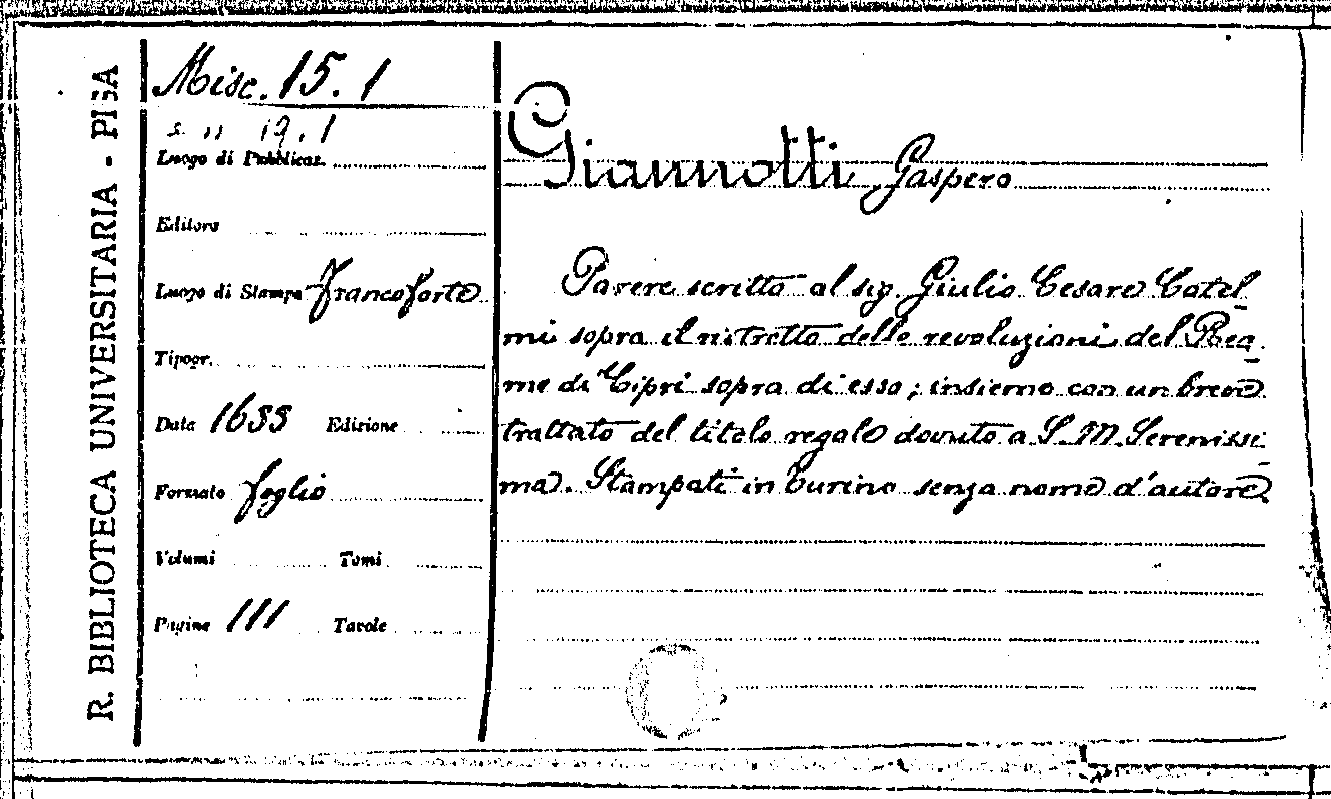 R. BIBLIOTECA UNIVERSITARIA - PISA
Misc. 15. 1
19. 1
Luogo di Pubblicaz.
Editore
Luogo di Stampa Francoforte
Tipogr.
Data 1633 Edizione
Formato foglio
Volumi Tomi
Pagine 111 Tavole
Giannotti Gaspero
Parere scritto al sig. Giulio Cesare Catel
mi sopra il ristretto delle revoluzioni del Rea
me di Cipri sopra di esso; insieme con un breve
trattato del titolo regale dovuto a S. M. Serenissi
ma. Stampati in Turino senza nome d'autore.